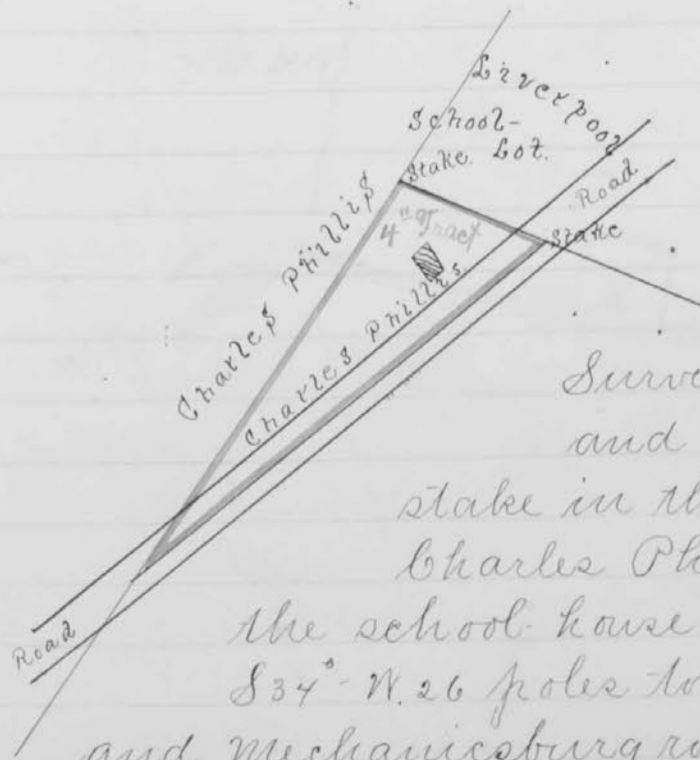 Liverpool
School-
Lot.
Stake
Road
Stake
4" Tract
Charles Phillis
Charles Phillis
Road
Surve
and
stake in th
Charles Ph
the school-house
S 34° - W. 26 poles to
and Mechanicsburg ro